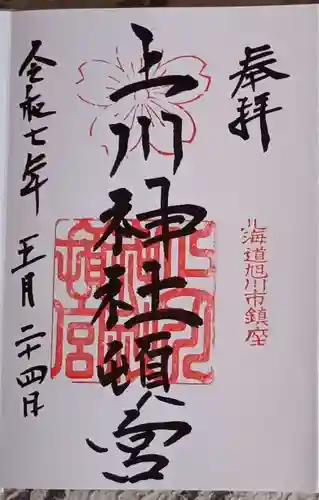 奉拝
北海道旭川市鎮座
上川神社頓宮
令和七年五月二十四日